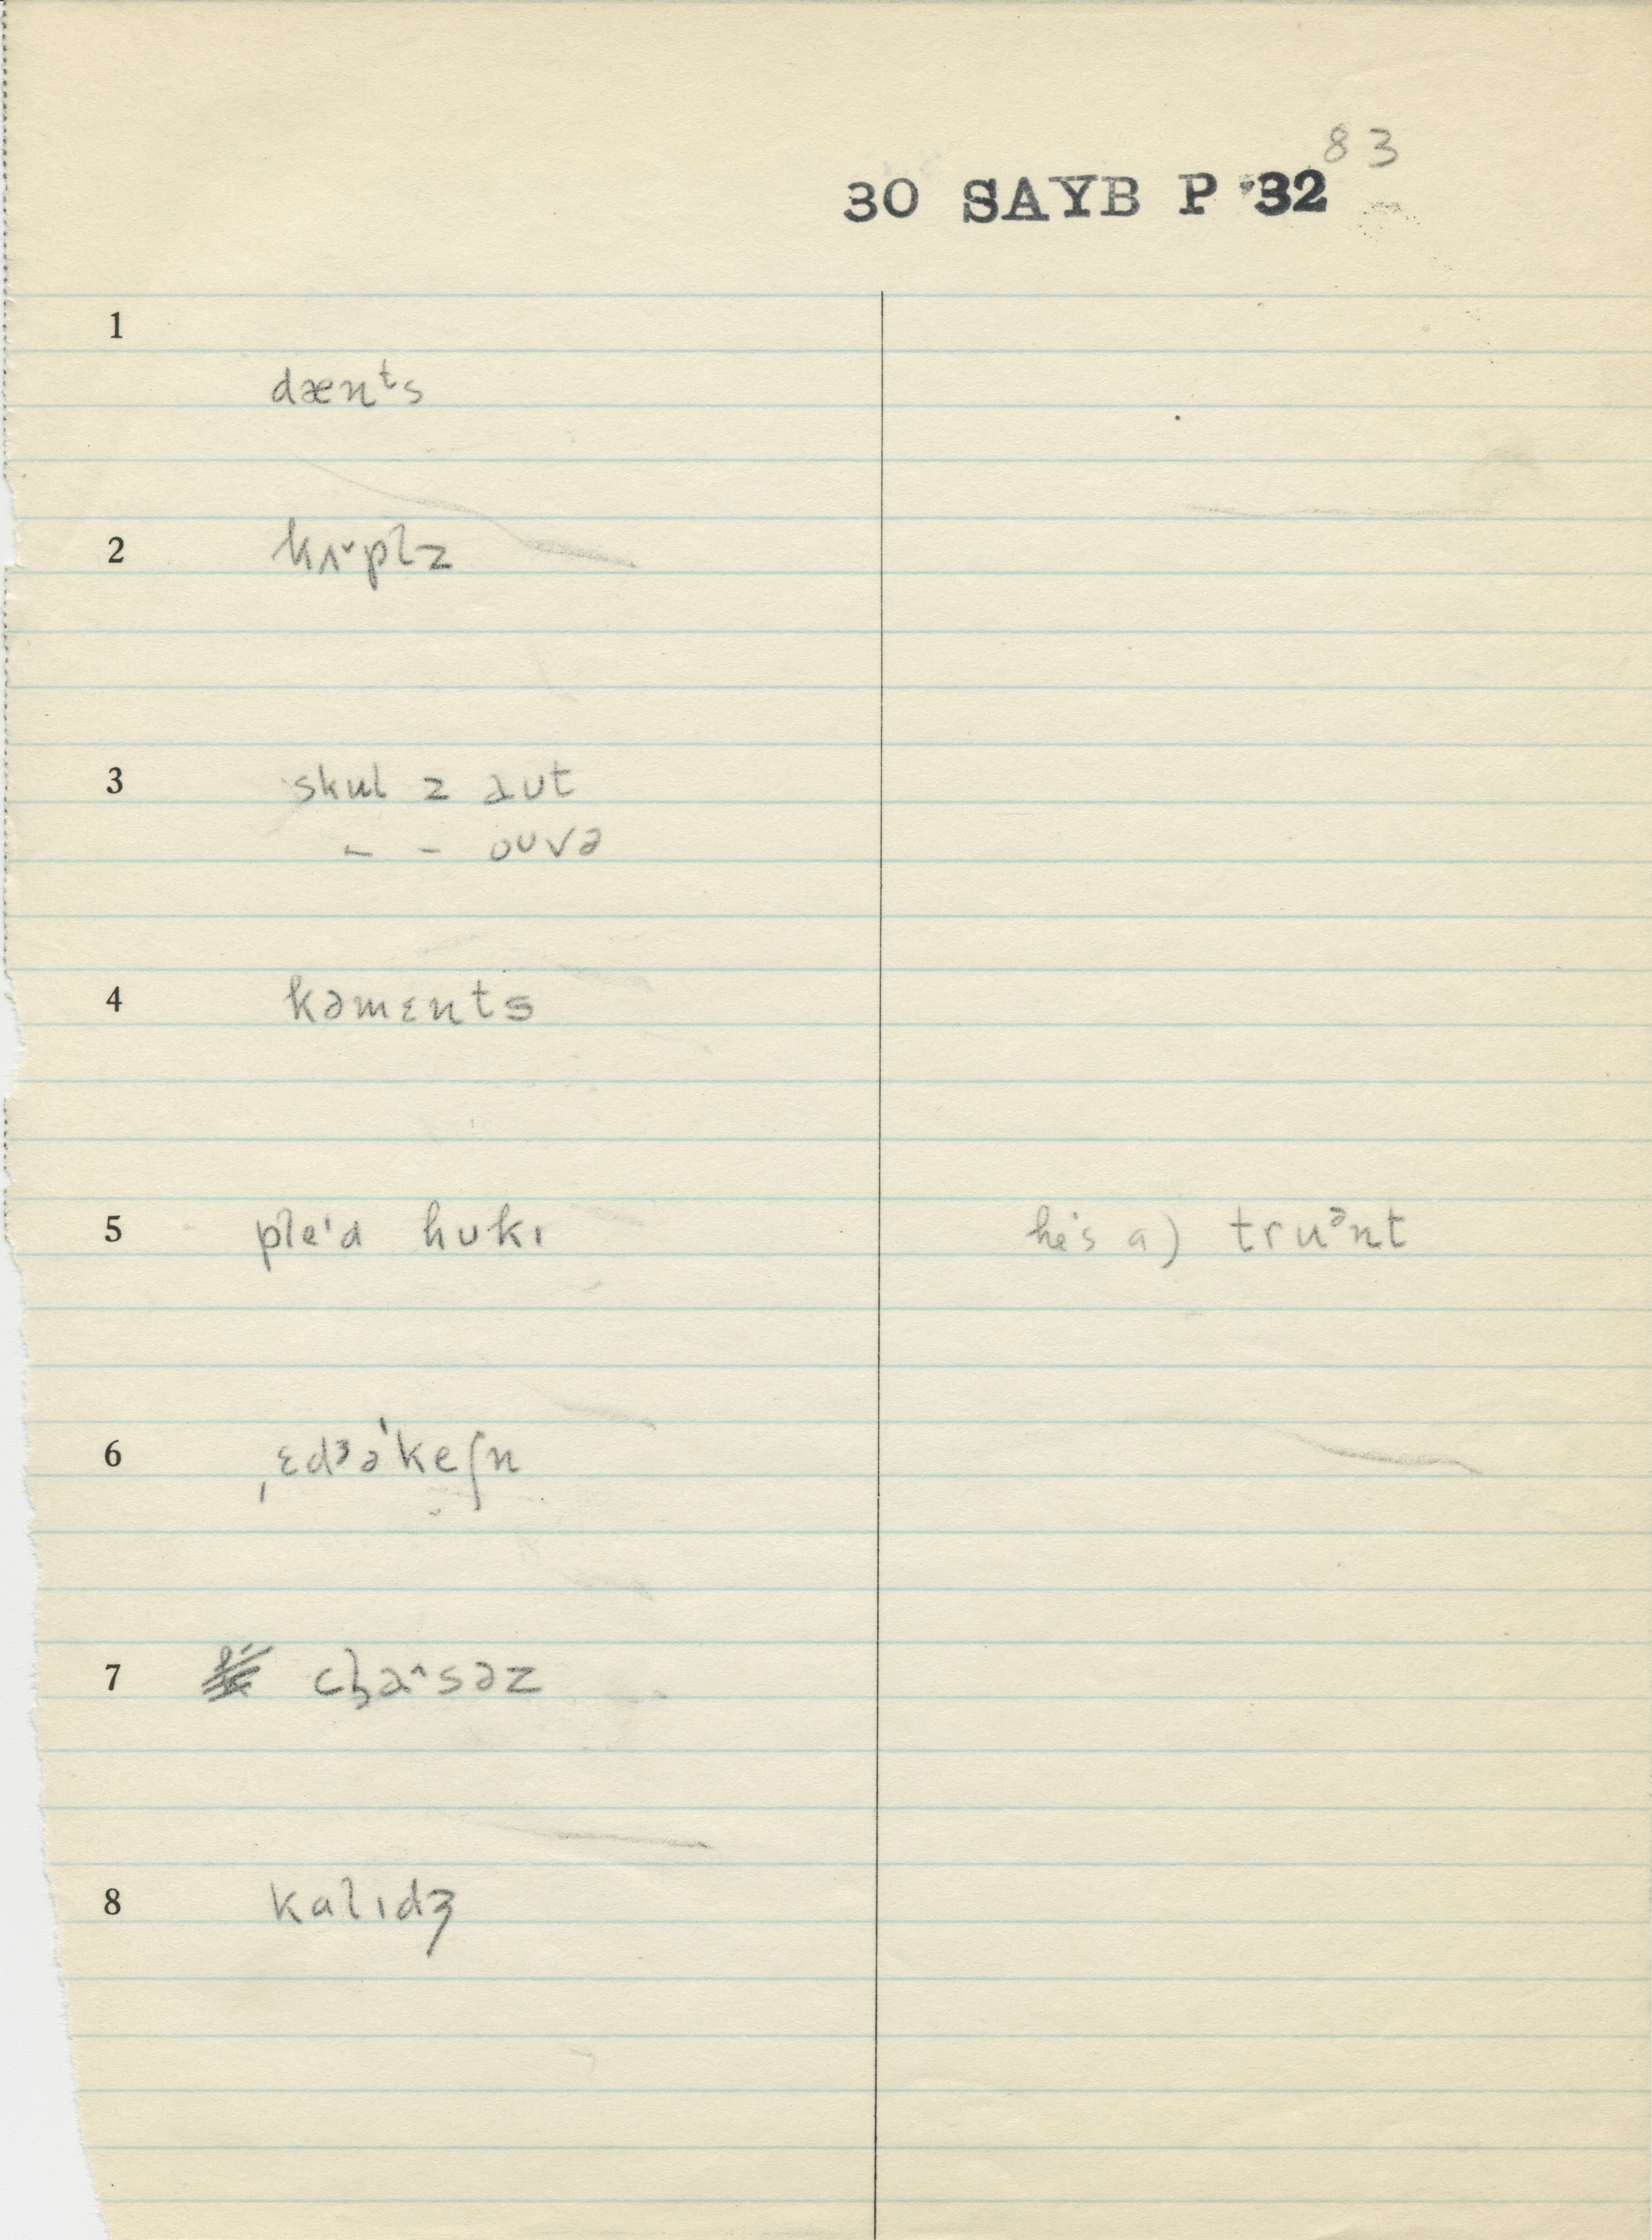 83
30 SAYB P 32
1
dænᵗs
2
kʌ˅plz
3
skul z aut
– – ouvə
4
kəmɛnts
5 pleˈd hukɪ he's a) truᵊnt
6
ˌɛdᶾəˈkeʃn
7
8
kalɪdʒ